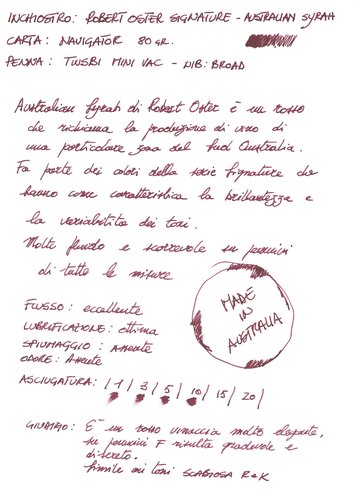 INCHIOSTRO: ROBERT OSTER SIGNATURE - AUSTRALIAN SYRAH
CARTA: NAVIGATOR 80 GR.
PENNA: TWSBI MINI VAC - NIB: BROAD
Australian Syrah di Robert Oster è un rosso
che richiama la produzione di vino di
una particolare zona del Sud Australia.
Fa parte dei colori della serie Signature che
hanno come caratteristica la brillantezza e
la variabilità dei toni.
Molto fluido e scorrevole su pennini
di tutte le misure
MADE
IN
AUSTRALIA
FLUSSO: eccellente
LUBRIFICAZIONE: ottima
SPIUMAGGIO: Assente
ODORE: Assente
ASCIUGATURA: / 1 / 3 / 5 / 10 / 15 / 20 /
GIUDIZIO: E' un rosso vinaccia molto elegante,
su pennini F risulta gradevole e
discreto.
Simile ai toni SCABIOSA R&K